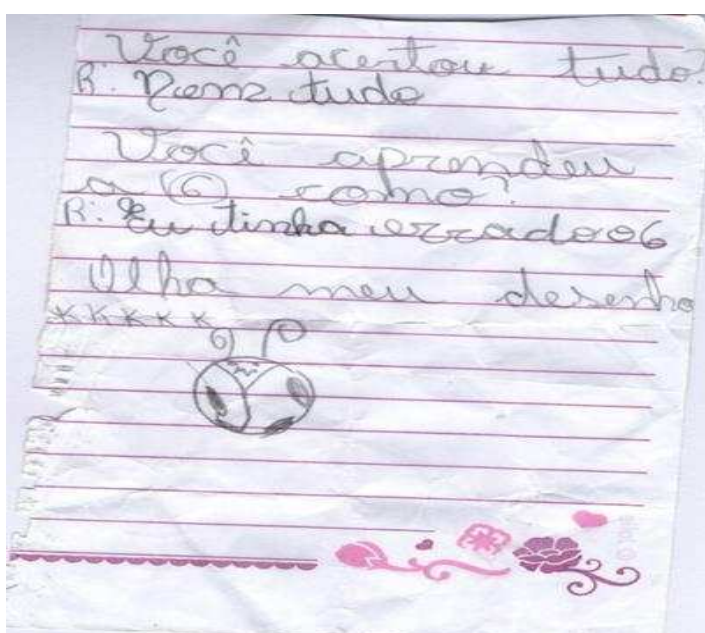 Você acertou tudo?
R: Nem tudo
Você aprendeu
a 6 como?
R: Eu tinha errado o 6
Olha meu desenho
KKKKK